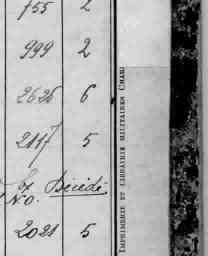 755 2
999 2
2626 6
2117 5
2021 5
IMPRIMERIE ET LIBRAIRIE MILITAIRES CHARL